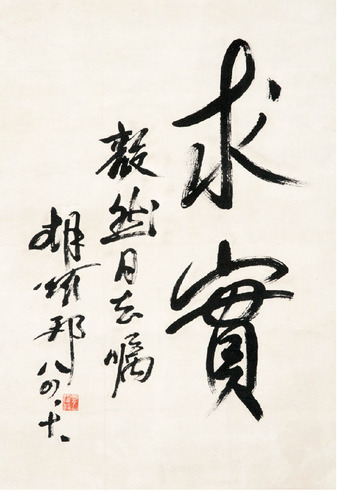 求實
毅然同志嘱
胡耀邦 八四、十、